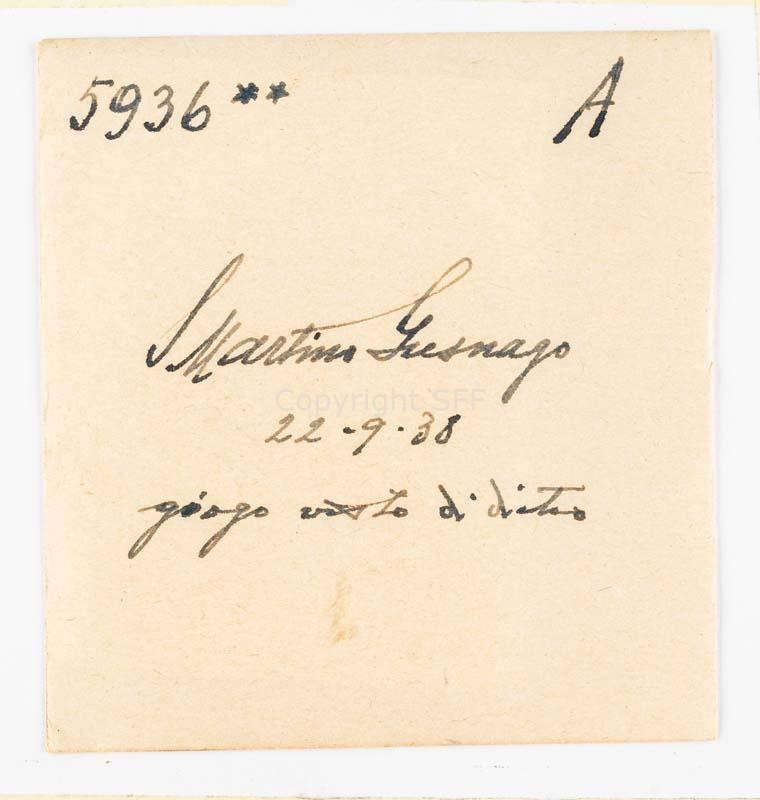 5936 ** A
S Martino Gusnago
Copyright SFF
22-9-38
giogo visto di dietro